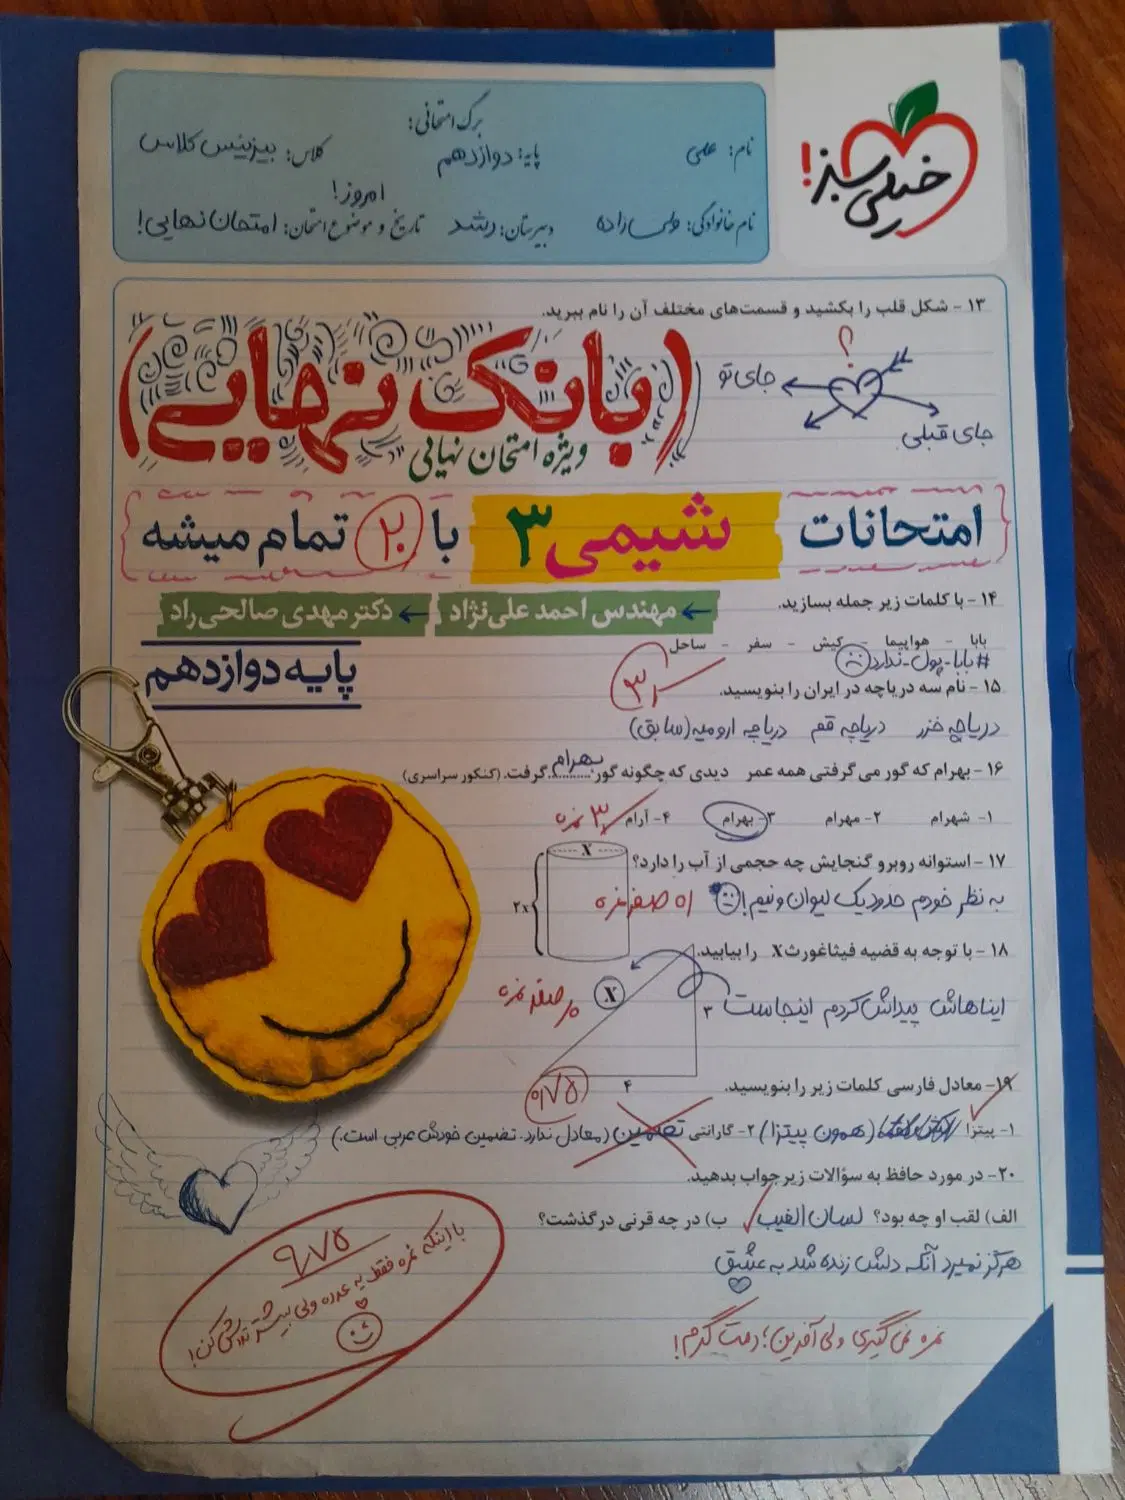 خیلی سبز!
برگ امتحانی:
نام: علی پایه: دوازدهم کلاس: بیزینس کلاس
امروز!
نام خانوادگی: ولی‌زاده دبیرستان: رشد تاریخ و موضوع امتحان: امتحان نهایی!
۱۳- شکل قلب را بکشید و قسمت‌های مختلف آن را نام ببرید.
؟
جای تو
جای قبلی
(بانک نهایی)
ویژه امتحان نهایی
امتحانات شیمی ۳ با ۲۰ تمام میشه
مهندس احمد علی‌نژاد دکتر مهدی صالحی‌راد
پایه دوازدهم
۱۴- با کلمات زیر جمله بسازید.
بابا - هواپیما - کیش - سفر - ساحل
#بابا-پول-ندارد
۱۵- نام سه دریاچه در ایران را بنویسید.
دریاچه خزر دریاچه قم دریاچه ارومیه (سابق)
۱۶- بهرام که گور می‌گرفتی همه عمر دیدی که چگونه گور بهرام گرفت. (کنکور سراسری)
۱- شهرام ۲- مهرام ۳- بهرام ۴- آرام ۳ نمره
۱۷- استوانه روبرو گنجایش چه حجمی از آب را دارد؟
X
۲x
به نظر خودم حدود یک لیوان و نیم! صفر نمره
۱۸- با توجه به قضیه فیثاغورث X را بیابید.
ایناهاش پیداش کردم اینجاست
X
۳
۴
صفر نمره
۰/۷۵
۱۹- معادل فارسی کلمات زیر را بنویسید.
۱- پیتزا (همون پیتزا) ۲- گارانتی تضمین (معادل ندارد. تضمین خودش عربی است.)
۲۰- در مورد حافظ به سؤالات زیر جواب بدهید.
الف) لقب او چه بود؟ لسان الغیب ب) در چه قرنی درگذشت؟
هرگز نمیرد آنکه دلش زنده شد به عشق
۹/۷۵
با اینکه نمره فقط یه عدده ولی بیشتر تلاش کن!
نمره نمی‌گیری ولی آفرین؛ دمت گرم!